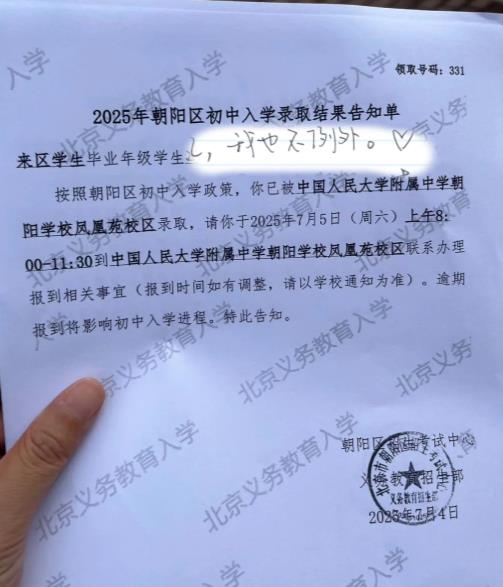 领取号码：331
2025年朝阳区初中入学录取结果告知单
来区学生毕业年级学生
，我也不例外。♡
按照朝阳区初中入学政策，你已被中国人民大学附属中学朝
阳学校凤凰苑校区录取，请你于2025年7月5日（周六）上午8:
00-11:30到中国人民大学附属中学朝阳学校凤凰苑校区联系办理
报到相关事宜（报到时间如有调整，请以学校通知为准）。逾期
报到将影响初中入学进程。特此告知。
朝阳区招生考试中心
义务教育招生部
2025年7月4日
北京市朝阳区招生考试中心
义务教育招生部
北京义务教育入学
北京义务教育入学
北京义务教育入学
北京义务教育入学
北京义务教育入学
北京义务教育入学